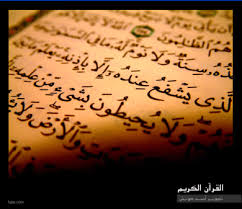 هُمُ الظَّالِمُونَ
خُذُهُ سِنَةٌ وَلَا نَوْمٌ لَهُ مَا فِي
لَّذِي يَشْفَعُ عِندَهُ إِلَّا بِإِذْنِهِ يَعْلَمُ
وَلَا يُحِيطُونَ بِشَيْءٍ مِّنْ عِلْمِهِ
وَالْأَرْضَ وَلَا
القرآن الكريم